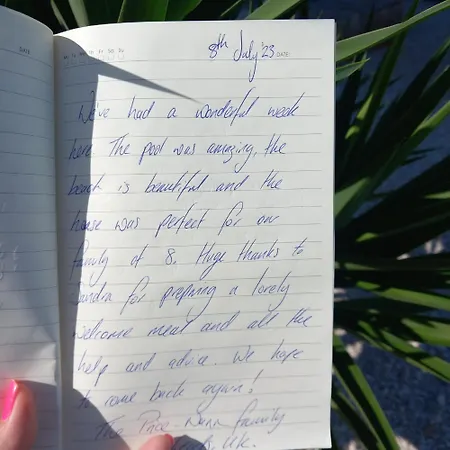 DATE:
8th July '23 DATE:
We've had a wonderful week
here. The pool was amazing, the
beach is beautiful and the
house was perfect for our
family of 8. Huge thanks to
Sandra for preparing a lovely
welcome meal and all the
help and advice. We hope
to come back again!
The Price Nunn family
UK.